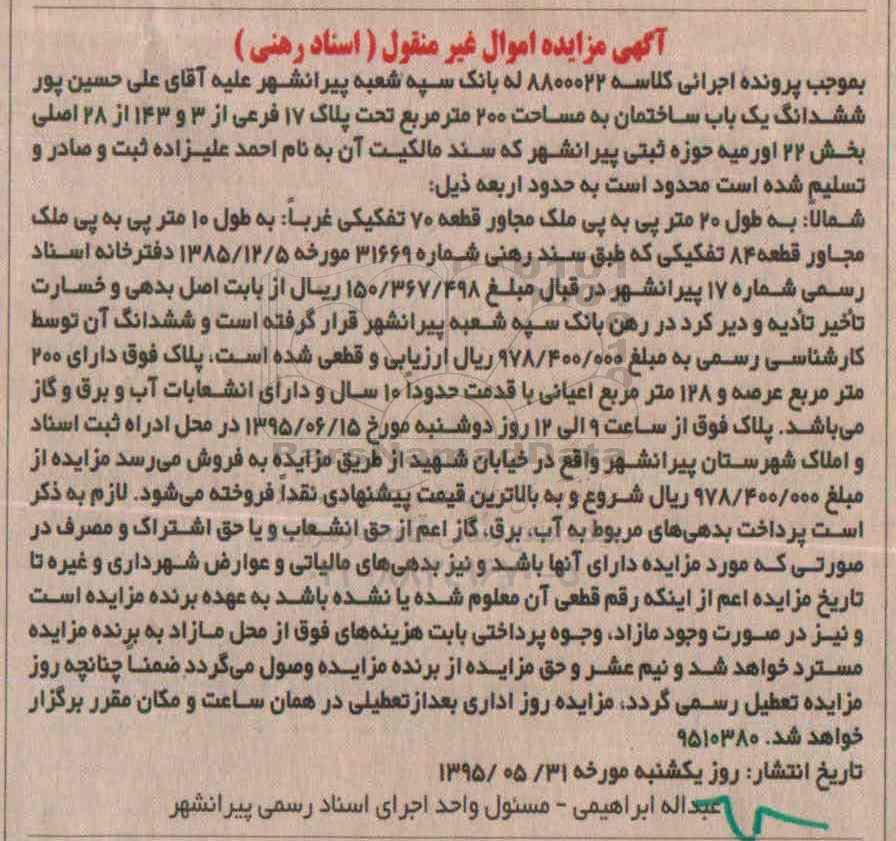 آگهی مزایده اموال غیر منقول ( اسناد رهنی )
بموجب پرونده اجرائی کلاسه ۸۸۰۰۰۲۲ له بانک سپه شعبه پیرانشهر علیه آقای علی حسین پور
ششدانگ یک باب ساختمان به مساحت ۲۰۰ مترمربع تحت پلاک ۱۷ فرعی از ۳ و ۱۴۳ از ۲۸ اصلی
بخش ۲۲ اورمیه حوزه ثبتی پیرانشهر که سند مالکیت آن به نام احمد علیزاده ثبت و صادر و
تسلیم شده است محدود است به حدود اربعه ذیل:
شمالاً: به طول ۲۰ متر پی به پی ملک مجاور قطعه ۷۰ تفکیکی غرباً: به طول ۱۰ متر پی به پی ملک
مجاور قطعه۸۴ تفکیکی که طبق سند رهنی شماره ۳۱۶۶۹ مورخه ۱۳۸۵/۱۲/۵ دفترخانه اسناد
رسمی شماره ۱۷ پیرانشهر در قبال مبلغ ۱۵۰/۳۶۷/۴۹۸ ریال از بابت اصل بدهی و خسارت
تأخیر تأدیه و دیر کرد در رهن بانک سپه شعبه پیرانشهر قرار گرفته است و ششدانگ آن توسط
کارشناسی رسمی به مبلغ ۹۷۸/۴۰۰/۰۰۰ ریال ارزیابی و قطعی شده است، پلاک فوق دارای ۲۰۰
متر مربع عرصه و ۱۲۸ متر مربع اعیانی با قدمت حدوداً ۱۰ سال و دارای انشعابات آب و برق و گاز
می‌باشد. پلاک فوق از ساعت ۹ الی ۱۲ روز دوشنبه مورخ ۱۳۹۵/۰۶/۱۵ در محل ادراه ثبت اسناد
و املاک شهرستان پیرانشهر واقع در خیابان شهید از طریق مزایده به فروش می‌رسد مزایده از
مبلغ ۹۷۸/۴۰۰/۰۰۰ ریال شروع و به بالاترین قیمت پیشنهادی نقداً فروخته می‌شود. لازم به ذکر
است پرداخت بدهی‌های مربوط به آب، برق، گاز اعم از حق انشعاب و یا حق اشتراک و مصرف در
صورتی که مورد مزایده دارای آنها باشد و نیز بدهی‌های مالیاتی و عوارض شهرداری و غیره تا
تاریخ مزایده اعم از اینکه رقم قطعی آن معلوم شده یا نشده باشد به عهده برنده مزایده است
و نیز در صورت وجود مازاد، وجوه پرداختی بابت هزینه‌های فوق از محل مازاد به برنده مزایده
مسترد خواهد شد و نیم عشر و حق مزایده از برنده مزایده وصول می‌گردد ضمناً چنانچه روز
مزایده تعطیل رسمی گردد، مزایده روز اداری بعدازتعطیلی در همان ساعت و مکان مقرر برگزار
خواهد شد. ۹۵۱۰۳۸۰
تاریخ انتشار: روز یکشنبه مورخه ۳۱/ ۰۵ /۱۳۹۵
عبداله ابراهیمی - مسئول واحد اجرای اسناد رسمی پیرانشهر